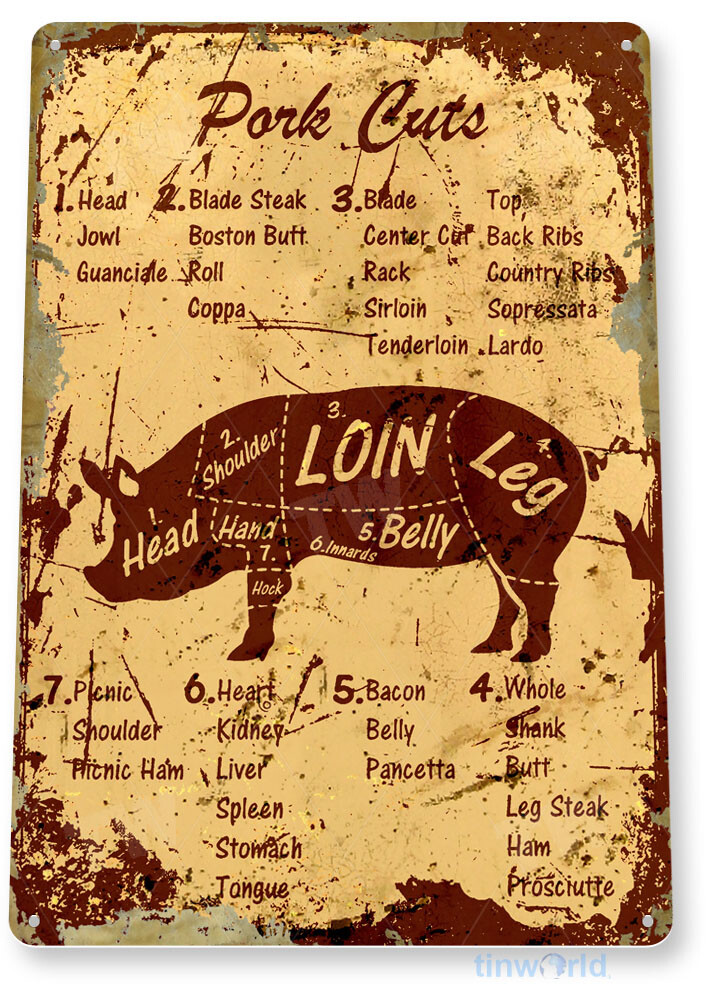 Pork Cuts
1. Head
Jowl
Guanciale
2. Blade Steak
Boston Butt
Roll
Coppa
3. Blade
Center Cut
Rack
Sirloin
Tenderloin
Top
Back Ribs
Country Ribs
Sopressata
Lardo
2.
Shoulder
3.
LOIN
4.
Leg
Head
Hand
7.
Hock
6. Innards
5. Belly
TW
7. Picnic
Shoulder
Picnic Ham
6. Heart
Kidney
Liver
Spleen
Stomach
Tongue
5. Bacon
Belly
Pancetta
4. Whole
Shank
Butt
Leg Steak
Ham
Prosciutte
tinworld